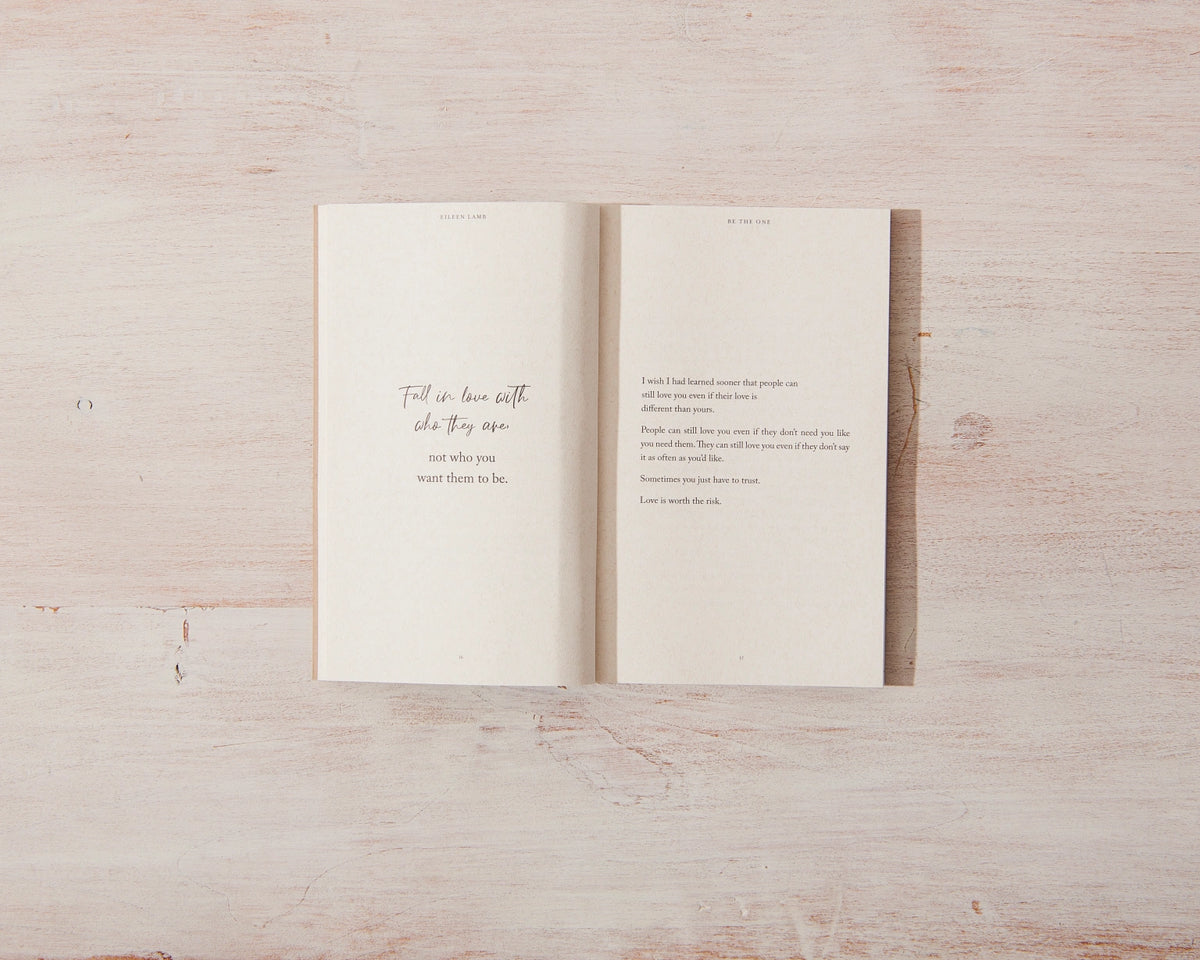 EILEEN LAMB
Fall in love with
who they are,
not who you
want them to be.
BE THE ONE
I wish I had learned sooner that people can
still love you even if their love is
different than yours.
People can still love you even if they don't need you like
you need them. They can still love you even if they don't say
it as often as you'd like.
Sometimes you just have to trust.
Love is worth the risk.